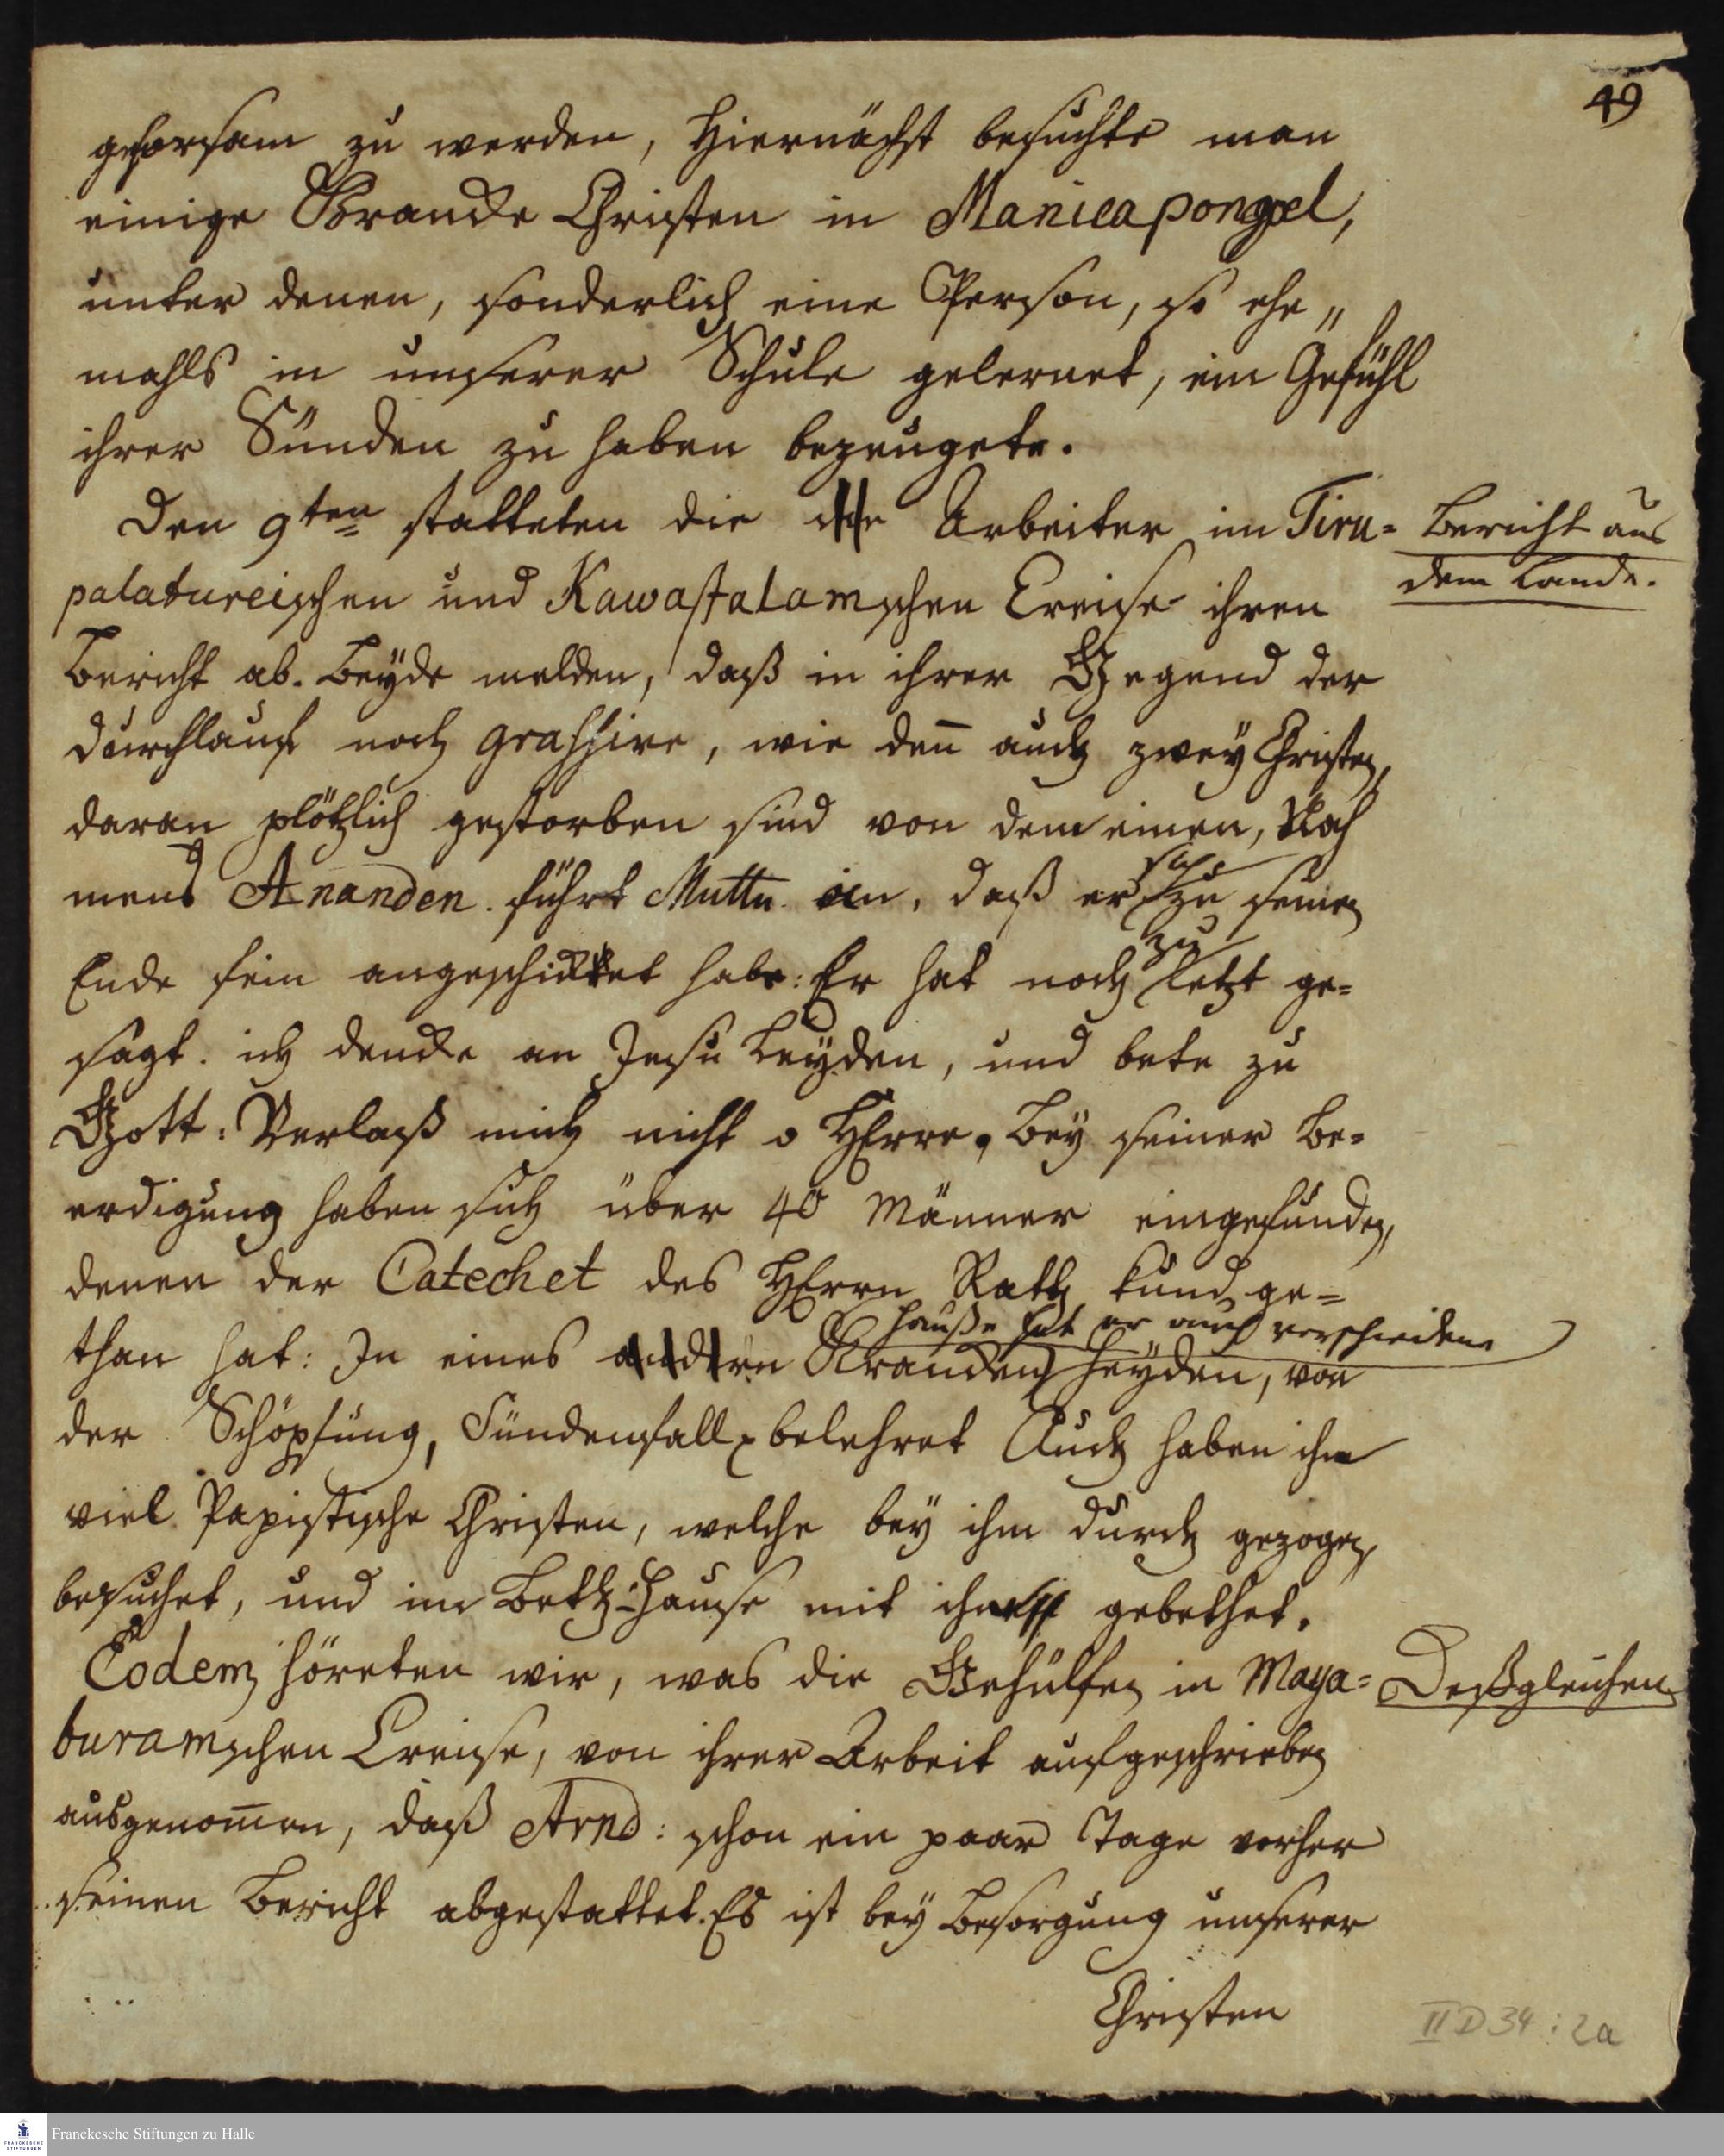 49
gehorsam zu werden, Hiernächst besuchte man
einige Krancke Christen in Manicapongel,
unter denen, sonderlich eine Person, so ehe„
mahls in unserer Schule gelernet, ein Gefühl
ihrer Sünden zu haben bezeugete.
Den 9ten statteten die Arbeiter im Tiru=
Bericht aus
dem Lande.
palatureischen und Kawastalamschen Creise ihren
Bericht ab. Beyde melden, daß in ihrer Gegend der
Durchlauf noch grassire, wie den̄ auch zwey Christen,
daran plötzlich gestorben sind von dem einen, Nah
mens Ananden. führt Muttu an, daß er sich zu seinen
Ende fein angeschicket habe: Er hat noch zu letzt ge=
sagt. ich dencke an Jesu Leyden, und bete zu
Gott: Verlaß mich nicht o HErre, Bey seiner Be=
erdigung haben sich über 40 Männer eingefunden,
denen der Catechet des HErrn Rath kund ge=
than hat: In eines andern Krancken Hauße hat er auch verschiedene Heyden, von
der Schöpfung, Sündenfall belehret Auch haben ihn
viel Papistische Christen, welche bey ihm durch gezogen,
besuchet, und im Beth-Hause mit ihm gebethet.
Eodem höreten wir, was die Gehülfen in Maya=
Deßgleichen
buramschen Creise, von ihrer Arbeit aufgeschrieben
ausgenom̄en, daß Arnd: schon ein paar Tage vorher
seinen Bericht abgestattet. Es ist bey Besorgung unserer
Christen
II D 34 : 2a
Franckesche Stiftungen zu Halle